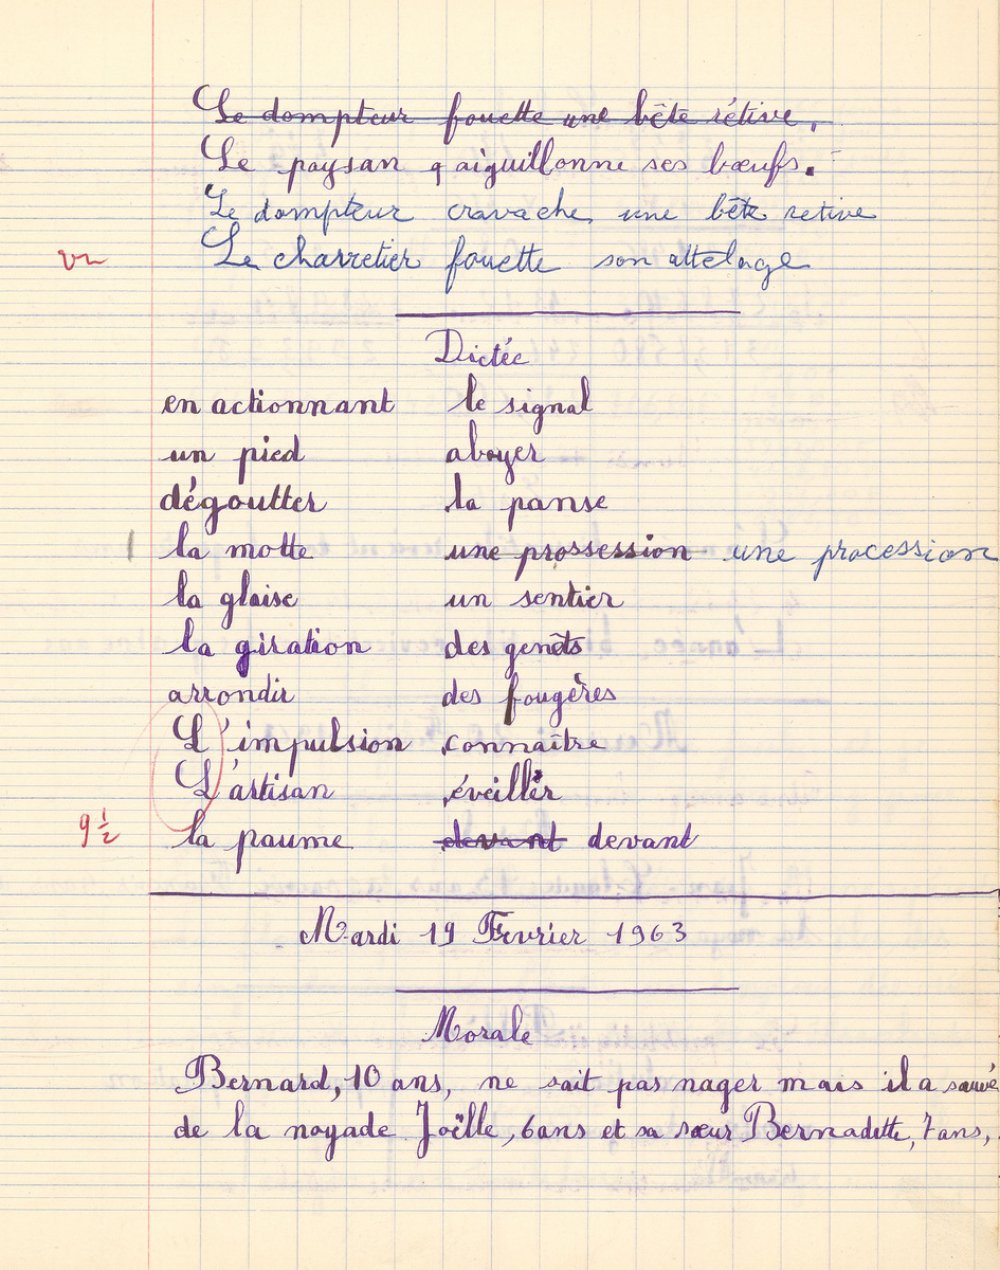 Le dompteur fouette une bête rétive.
Le paysan aiguillonne ses bœufs.
Le dompteur cravache une bête retive
Le charretier fouette son attelage
Dictée
en actionnant le signal
un pied aboyer
dégoutter la panse
la motte une prossession une procession
la glaise un sentier
la giration des genêts
arrondir des fougères
L'impulsion connaître
L'artisan éveiller
9 1/2 la paume devant devant
Mardi 19 Février 1963
Morale
Bernard, 10 ans, ne sait pas nager mais il a sauvé
de la noyade Joëlle, 6 ans et sa sœur Bernadette, 7 ans,